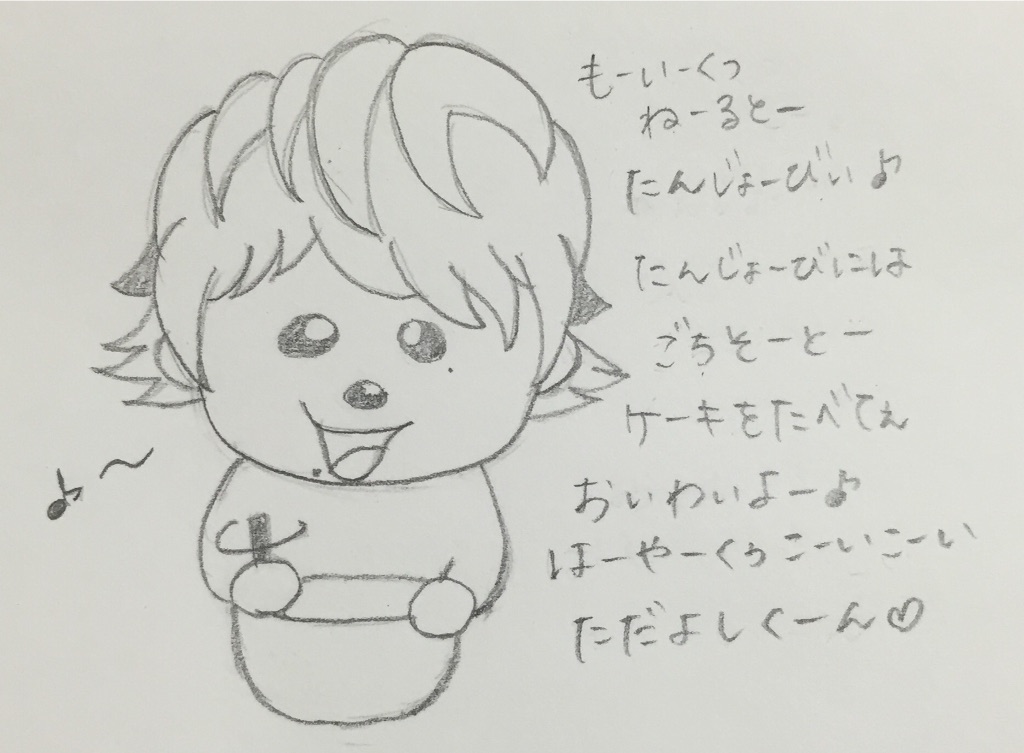 もーいーくつ
ねーるとー
たんじょーびぃ♪
たんじょーびには
ごちそーとー
ケーキをたべてぇ
おいわいよー♪
はーやーくぅこーいこーい
ただよしくーん♡